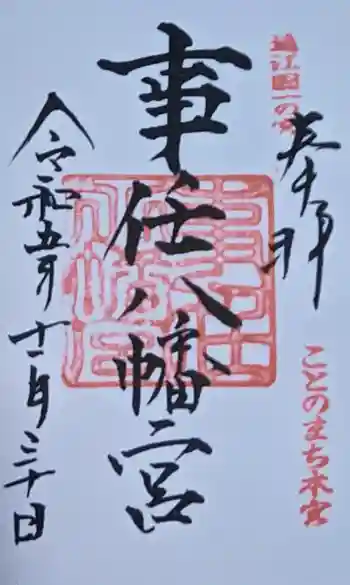 遠江国一の宮
奉拝
ことのまち本宮
事任八幡宮
令和五年十一月三十日